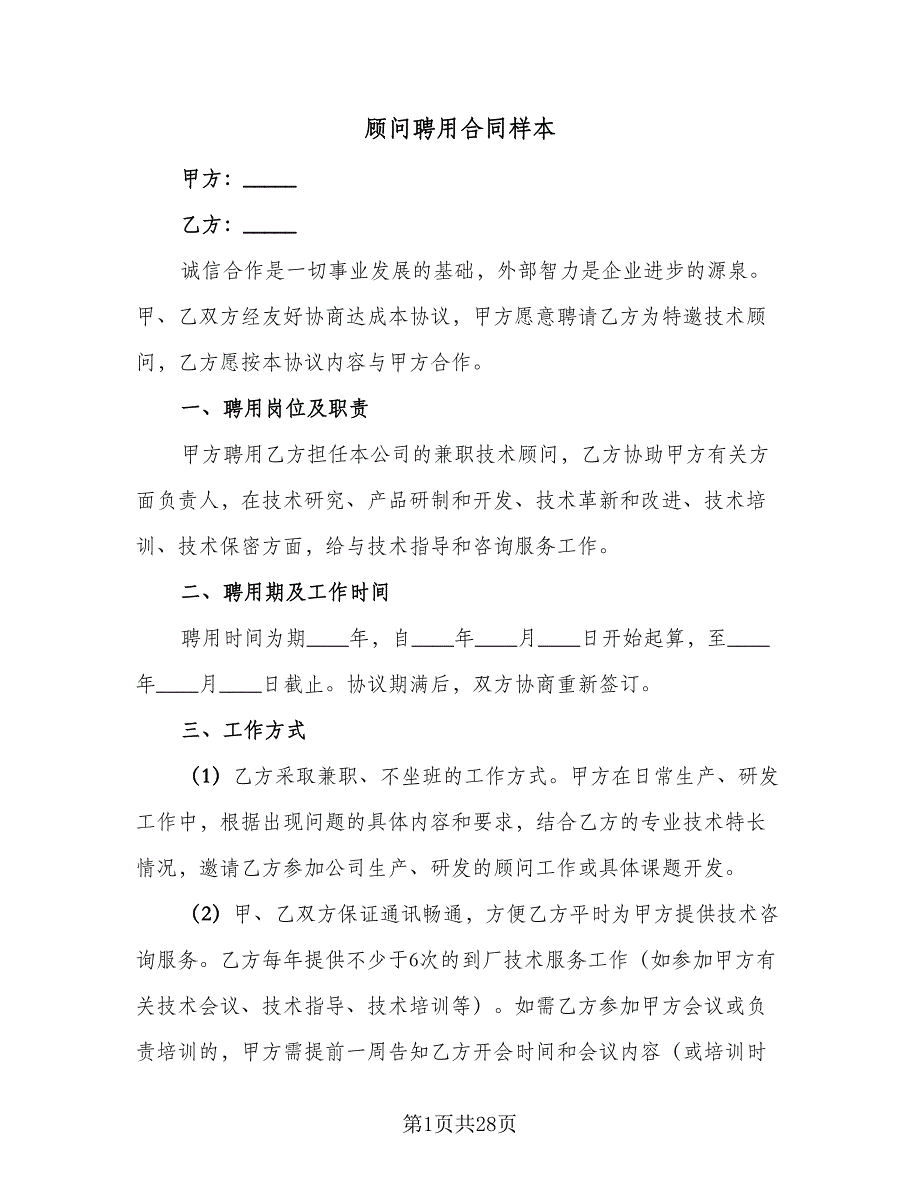 顾问聘用合同样本
甲方：_____
乙方：_____
诚信合作是一切事业发展的基础，外部智力是企业进步的源泉。
甲、乙双方经友好协商达成本协议，甲方愿意聘请乙方为特邀技术顾
问，乙方愿按本协议内容与甲方合作。
一、聘用岗位及职责
甲方聘用乙方担任本公司的兼职技术顾问，乙方协助甲方有关方
面负责人，在技术研究、产品研制和开发、技术革新和改进、技术培
训、技术保密方面，给与技术指导和咨询服务工作。
二、聘用期及工作时间
聘用时间为期____年，自____年____月____日开始起算，至____
年____月____日截止。协议期满后，双方协商重新签订。
三、工作方式
（1）乙方采取兼职、不坐班的工作方式。甲方在日常生产、研发
工作中，根据出现问题的具体内容和要求，结合乙方的专业技术特长
情况，邀请乙方参加公司生产、研发的顾问工作或具体课题开发。
（2）甲、乙双方保证通讯畅通，方便乙方平时为甲方提供技术咨
询服务。乙方每年提供不少于6次的到厂技术服务工作（如参加甲方有
关技术会议、技术指导、技术培训等）。如需乙方参加甲方会议或负
责培训的，甲方需提前一周告知乙方开会时间和会议内容（或培训时
第1页共28页